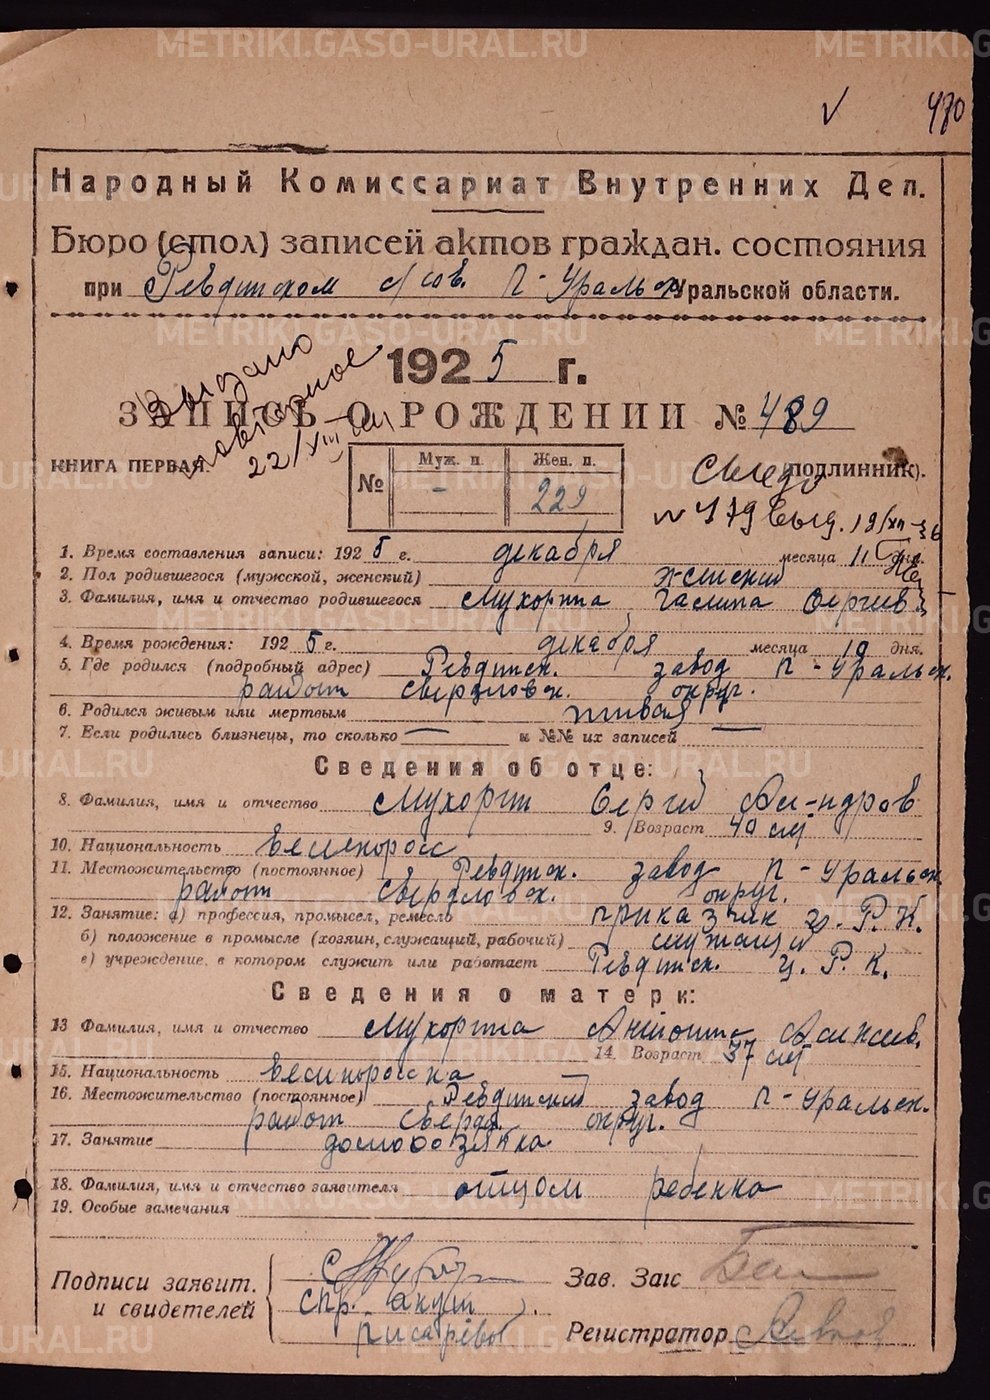 470
Народный Комиссариат Внутренних Дел.
Бюро (стол) записей актов граждан. состояния
при Ревдинском П-Уральск Уральской области.
1925 г.
Выдано
повторное
22/XII
ЗАПИСЬ О РОЖДЕНИИ № 489
КНИГА ПЕРВАЯ. (подлинник).
№ Муж. п. Жен. п.
- 229
выд.
1. Время составления записи: 1925 г. декабря месяца 11 дня.
2. Пол родившегося (мужской, женский) женский
3. Фамилия, имя и отчество родившегося Мухорина Галина Сергиев
4. Время рождения: 1925 г. декабря месяца 10 дня.
5. Где родился (подробный адрес) Ревдинск. завод П-Уральск.
район Свердловск. округ.
6. Родился живым или мертвым живая
7. Если родились близнецы, то сколько — и №№ их записей —
Сведения об отце:
8. Фамилия, имя и отчество Мухорин Сергий Ал-ндров
9. Возраст 40 лет
10. Национальность великоросс
11. Местожительство (постоянное) Ревдинск. завод П-Уральск
район Свердловск. округ.
12. Занятие: а) профессия, промысел, ремесло приказчик Ц. Р. К.
б) положение в промысле (хозяин, служащий, рабочий) служащий
в) учреждение, в котором служит или работает Ревдинск. Ц. Р. К.
Сведения о матери:
13 Фамилия, имя и отчество Мухорина Алексеев.
14. Возраст 37 лет
15. Национальность великоросска
16. Местожительство (постоянное) Ревдинский завод П-Уральск.
район Свердл. округ.
17. Занятие домохозяйка
18. Фамилия, имя и отчество заявителя отцом ребенка
19. Особые замечания
Подписи заявит.
и свидетелей
Зав. Загс
Регистратор
METRIKI.GASO-URAL.RU